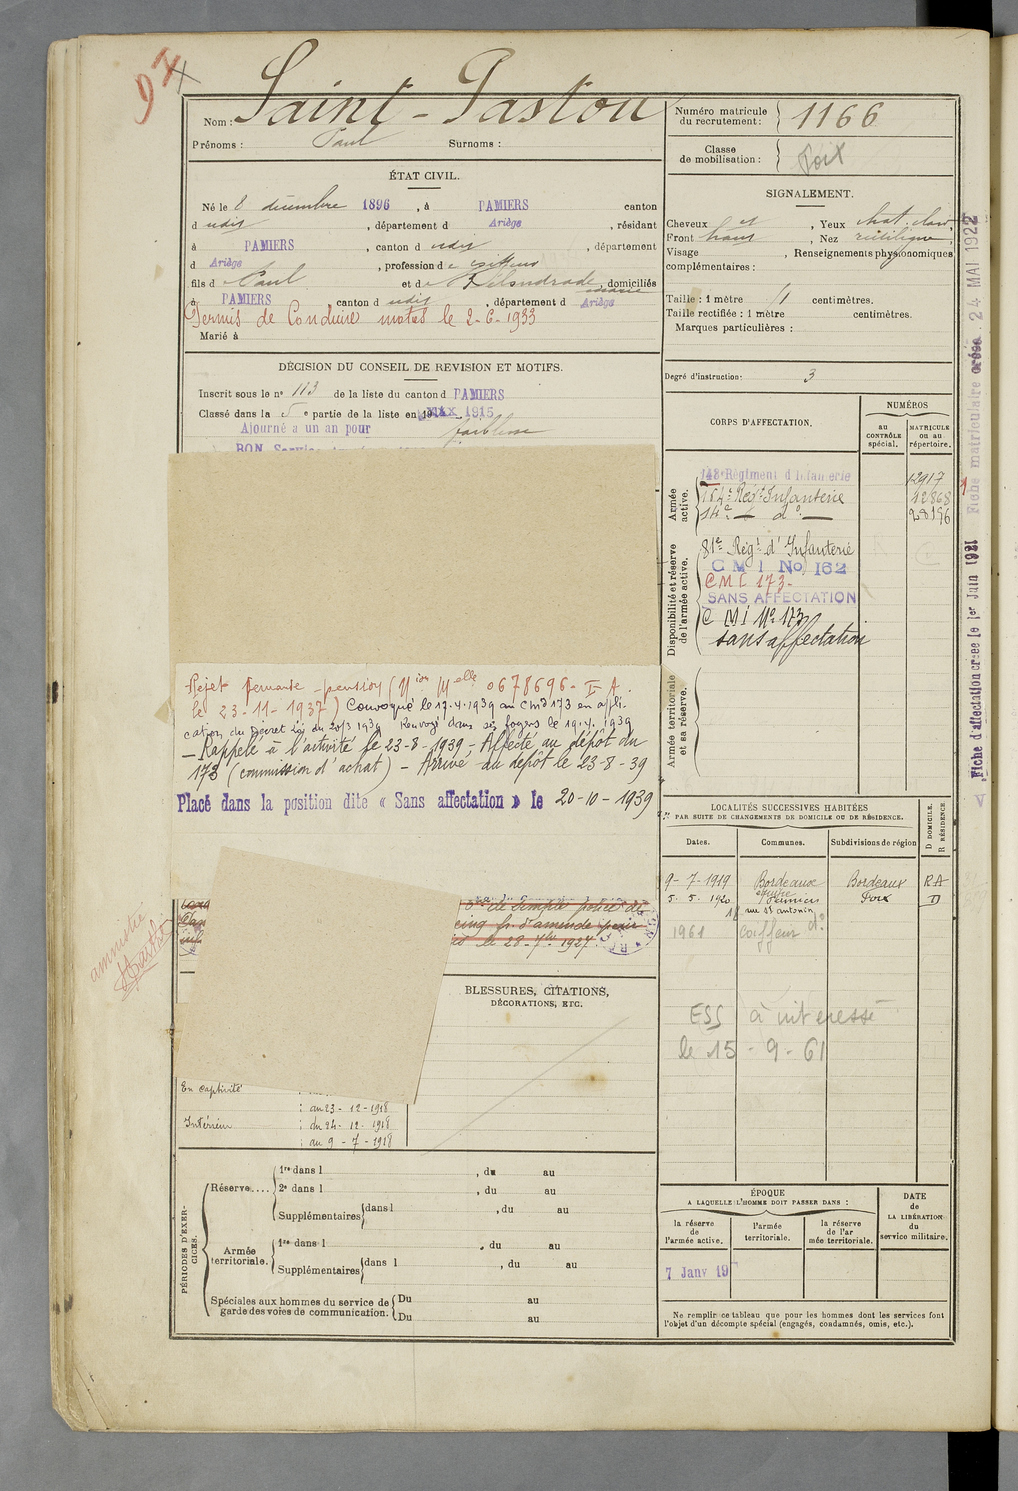 97
Nom : Saint-Pastou
Prénoms : Paul Surnoms :
Numéro matricule du recrutement : 1166
Classe de mobilisation : Foix
ÉTAT CIVIL.
Né le 8 décembre 1896, à PAMIERS canton
d udit, département d Ariège, résidant
à PAMIERS, canton d udit, département
d Ariège, profession d
fils d Paul et d, domiciliés
à PAMIERS, canton d udit, département d Ariège
Permis de Conduire motos le 2-6-1933
Marié à
SIGNALEMENT.
Cheveux, Yeux chat. clair
Front haut, Nez rectiligne
Visage, Renseignements physionomiques
complémentaires :
Taille : 1 mètre 61 centimètres.
Taille rectifiée : 1 mètre centimètres.
Marques particulières :
Degré d'instruction : 3
DÉCISION DU CONSEIL DE REVISION ET MOTIFS.
Inscrit sous le nº 113 de la liste du canton d PAMIERS
Classé dans la 5 e partie de la liste en 1915
Ajourné a un an pour faiblesse
BON Service
CORPS D'AFFECTATION.
NUMÉROS
au CONTRÔLE spécial.
MATRICULE ou au répertoire.
Armée active.
143e Régiment d'Infanterie 12917
154e Régt Infanterie 42868
14e — do — 28196
Disponibilité et réserve de l'armée active.
81e Régt d'Infanterie
C M I No 162
CMI 173-
SANS AFFECTATION
C M I No 173
sans affectation
Armée territoriale et sa réserve.
Rejet demande pension (Non Melle 0678696-II A.
le 23-11-1937) Convoqué le 17.4.1939 au CMI 173 en appli-
cation du Décret Loi du 20/3 1939 Renvoyé dans ses foyers le 19.4.1939
— Rappelé à l'activité le 23-8-1939 - Affecté au dépôt du
173 (commission d'achat) - Arrivé au dépôt le 23-8-39
Placé dans la position dite « Sans affectation » le 20-10-1939
de simple police de
cinq fr. d'amende pour
le 28-7bre 1927
amnistié
BLESSURES, CITATIONS,
DÉCORATIONS, ETC.
En captivité
: au 23-12-1918
Intérieur : du 24-12-1918
: au 9-7-1918
LOCALITÉS SUCCESSIVES HABITÉES
PAR SUITE DE CHANGEMENTS DE DOMICILE OU DE RÉSIDENCE.
Dates. Communes. Subdivisions de région D DOMICILE. R RÉSIDENCE
9-7-1919 Bordeaux Bordeaux RA
5-5-1920 Pamiers Foix D
18 rue St antonin
1961 coiffeur do
ESS à intéressé
le 15-9-61
PÉRIODES D'EXERCICES.
Réserve.... 1re dans l, du au
2e dans l, du au
Supplémentaires dans l, du au
Armée territoriale. 1re dans l, du au
Supplémentaires dans l, du au
Spéciales aux hommes du service de garde des voies de communication. Du au
Du au
ÉPOQUE
A LAQUELLE L'HOMME DOIT PASSER DANS :
la réserve de l'armée active.
l'armée territoriale.
la réserve de l'armée territoriale.
DATE de LA LIBÉRATION du service militaire.
7 Janv 19
Ne remplir ce tableau que pour les hommes dont les services font
l'objet d'un décompte spécial (engagés, condamnés, omis, etc.).
Fiche d'affectation créée le 1er Juin 1921 Fiche matriculaire créée 24 MAI 1922